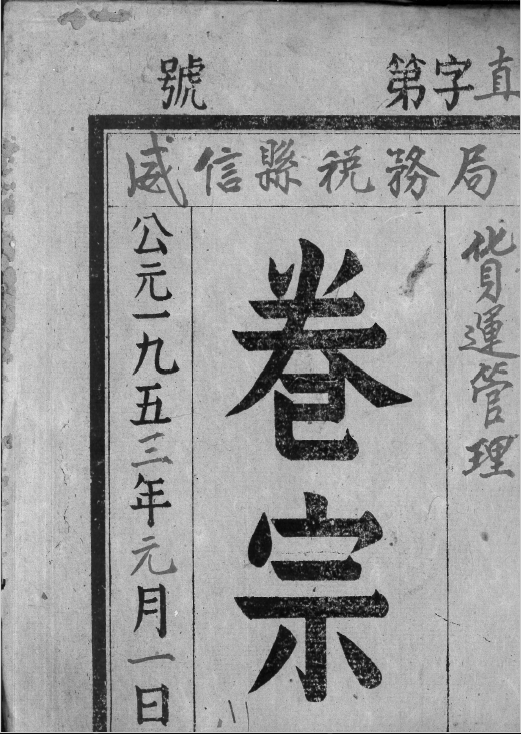 直字第號
威信縣税務局
貨運管理
卷宗
公元一九五三年元月一日